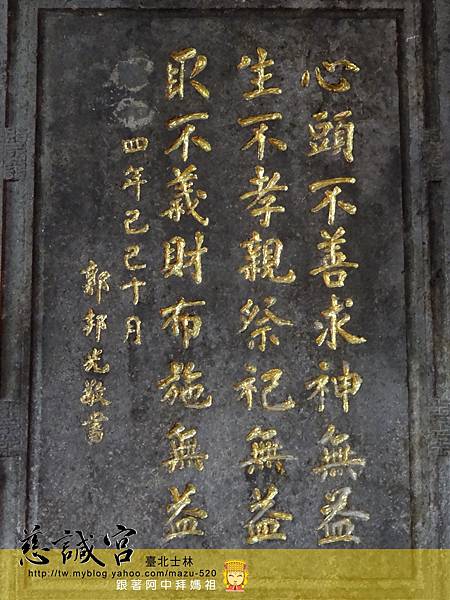 心頭不善求神無益
生不孝親祭祀無益
取不義財布施無益
四年己巳十月
郭邦光敬書
慈諴宮 臺北士林
http://tw.myblog.yahoo.com/mazu-520
跟著阿中拜媽祖